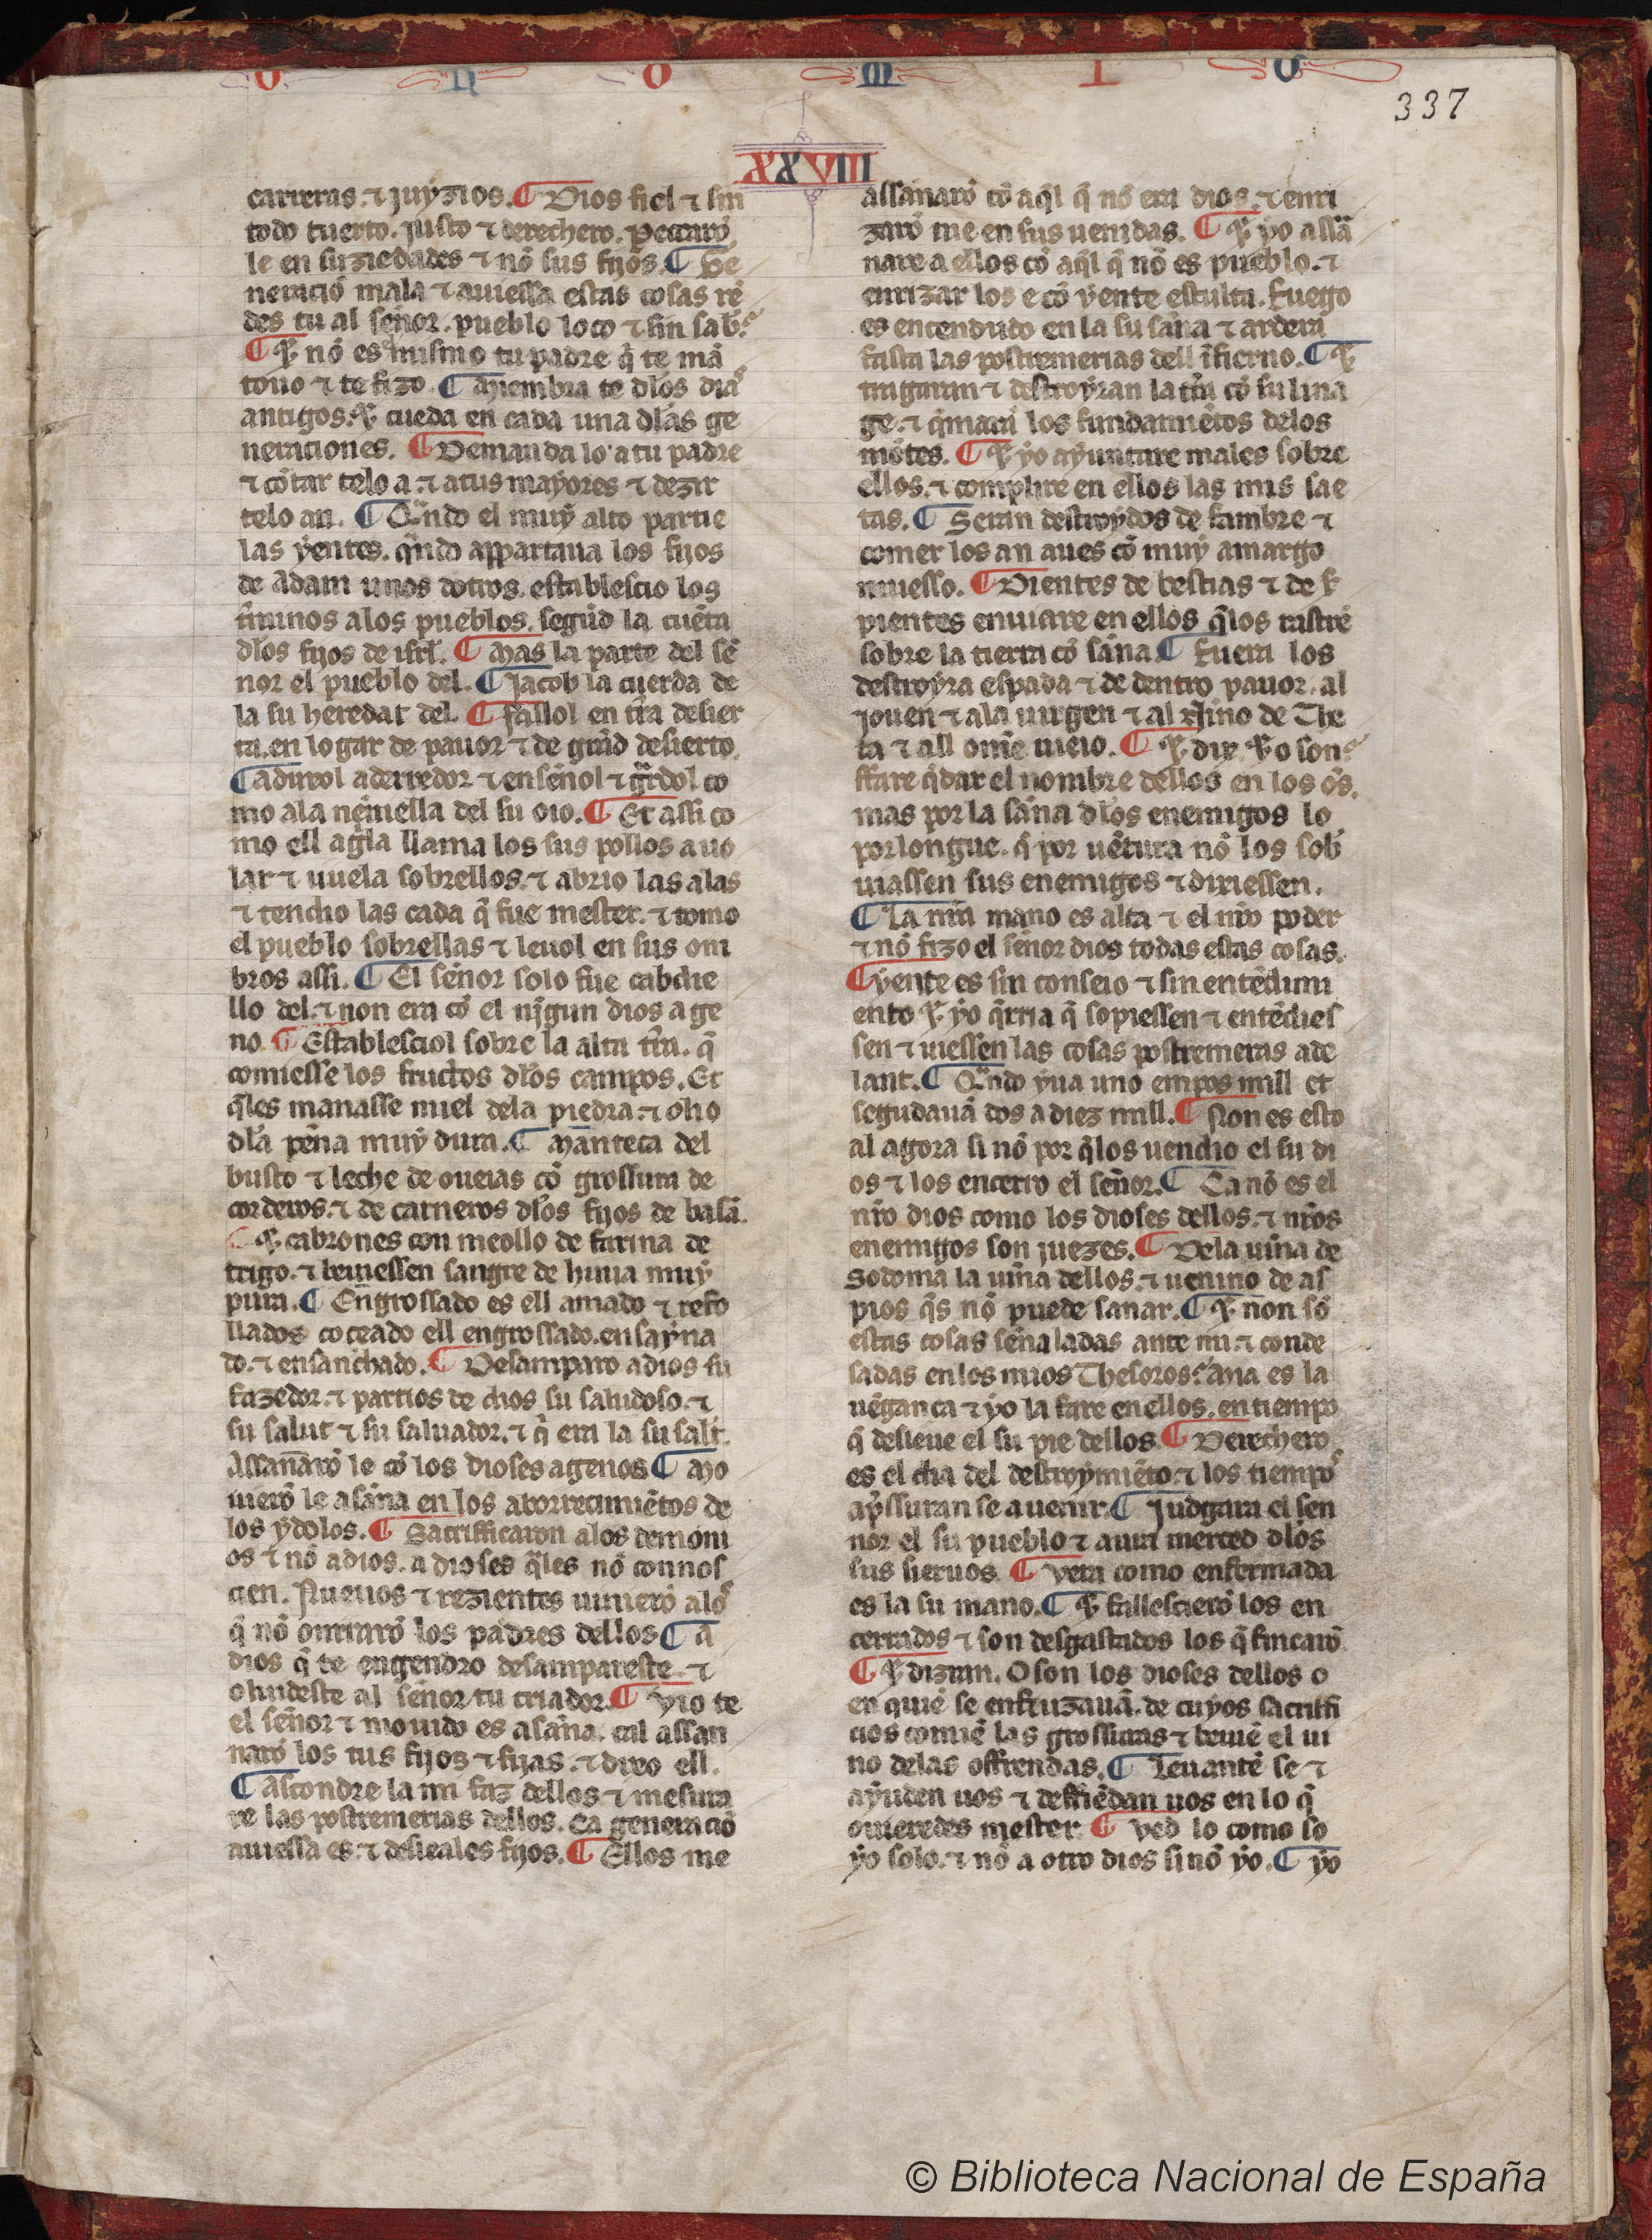 O N O M I O
337
XXVIII
carreras. ⁊ juyzios. ¶ Dios fiel ⁊ sin
todo tuerto. justo ⁊ derechero. Peccarõ
le en suziedades ⁊ nõ sus fijos. ¶ Ge
neraciõ mala ⁊ auiessa estas cosas rẽ
des tu al señor. pueblo loco ⁊ sin sab̃.
¶ ⁊ nõ es el mismo tu padre q̃ te mã
touo ⁊ te fizo. ¶ Miembra te dlos dias
antigos. ⁊ cueda en cada una dlas ge
neraciones. ¶ Demanda lo a tu padre
⁊ cõtar telo a. ⁊ a tus mayores ⁊ dezir
telo an. ¶ Quãdo el muy alto partie
las yentes. quãdo appartaua los fijos
de Adam unos dotros. establescio los
t̃minos alos pueblos. segũd la cuẽta
dlos fijos de isrl. ¶ Mas la parte del se
ñor el pueblo del. ¶ Jacob la cuerda de
la su heredat del. ¶ Fallol en tr̃a desier
ta. en logar de pauor ⁊ de grãd desierto.
¶ Aduxol aderredor ⁊ enseñol ⁊ guardol co
mo ala neñiella del su oio. ¶ Et assi co
mo ell agla llama los sus pollos a uo
lar ⁊ uuela sobrellos. ⁊ abrio las alas
⁊ tendio las cada q̃ fue mester. ⁊ tomo
el pueblo sobrellas ⁊ leuol en sus om
bros assi. ¶ El señor solo fue cabdie
llo del. ⁊ non era cõ el ningun dios age
no. ¶ Establesciol sobre la alta tr̃a. q̃
comiesse los fructos dlos campos. Et
q̃les manasse miel dela piedra. ⁊ olio
dla peña muy dura. ¶ Manteca del
busto ⁊ leche de oueias cõ grossura de
corderos. ⁊ de carneros dlos fijos de basã.
¶ ⁊ cabrones con meollo de farina de
trigo. ⁊ beuiessen sangre de huua muy
pura. ¶ Engrossado es ell amado ⁊ refo
llados coceado ell engrossado. ensayna
do. ⁊ ensanchado. ¶ Desamparo a dios su
fazedor. ⁊ partios de dios su saludoso. ⁊
su salut ⁊ su saluador. ⁊ q̃ era la su salt.
Assañarõ le cõ los dioses agenos ¶ Mo
uierõ le a saña en los aborrecimiẽtos de
los ydolos. ¶ Sacrifficaron alos demoni
os ⁊ nõ a dios. a dioses q̃les nõ connos
cien. Nueuos ⁊ rezientes uinierõ alos
q̃ nõ onrrarõ los padres dellos ¶ A
dios q̃ te engendro desampareste. ⁊
oluideste al señor tu criador. ¶ Vio te
el señor ⁊ mouido es a saña. cal assan
narõ los tus fijos ⁊ fijas. ⁊ dixo ell.
¶ Ascondre la mi faz dellos. ⁊ mesura
re las postremerias dellos. Ca generaciõ
auiessa es. ⁊ desleales fijos. ¶ Ellos me
assañarõ cõ aq̃l q̃ nõ era dios. ⁊ enri
zarõ me en sus uenidas. ¶ ⁊ yo assã
nare a ellos cõ aq̃l q̃ nõ es pueblo. ⁊
enrizar los e cõ yente estulta. Fuego
es encendudo en la su saña ⁊ ardera
fasta las postremerias dell ĩfierno. ¶ ⁊
tragaran ⁊ destroyran la tr̃a cõ su lina
ge. ⁊ q̃marã los fundamiẽtos delos
mõtes. ¶ ⁊ yo ayuntare males sobre
ellos. ⁊ complire en ellos las mis sae
tas. ¶ Seran destroydos de fambre ⁊
comer los an aues cõ muy amargo
muesso. ¶ Dientes de bestias ⁊ de s̃
pientes enuiare en ellos q̃los rastrẽ
sobre la tierra cõ saña. ¶ Fuera los
destroyra espada ⁊ de dentro pauor. al
jouen ⁊ ala uirgen ⁊ al niño de The
ta ⁊ all ome uieio. ¶ ⁊ dix. ⁊ o son.
ffare q̃dar el nombre dellos en los om̃s.
mas por la saña dlos enemigos lo
porlongue. q̃ por uẽtura nõ los sob̃
uiassen sus enemigos ⁊ dixiessen.
¶ La nr̃a mano es alta ⁊ el nr̃o poder
⁊ nõ fizo el señor dios todas estas cosas.
¶ yente es sin conseio ⁊ sin entẽdimi
ento ⁊ yo q̃rria q̃ sopiessen ⁊ entẽdies
sen ⁊ uiessen las cosas postremeras ade
lant. ¶ Quãdo yua uno empos mill et
segudauã dos a diez mill. ¶ Non es esto
al agora si nõ por q̃los uendio el su di
os ⁊ los encerro el señor. ¶ Ca nõ es el
nr̃o dios como los dioses dellos. ⁊ nr̃os
enemigos son juezes. ¶ Dela uiña de
Sodoma la uiña dellos. ⁊ uenino de as
pios q̃s nõ puede sanar. ¶ ⁊ non sõ
estas cosas señaladas ante mi. ⁊ conde
sadas enlos mios Thesoros. Mia es la
uẽgança ⁊ yo la fare en ellos. en tiempo
q̃ desleue el su pie dellos ¶ Derechero
es el dia del destroymiẽto. ⁊ los tiempos
apssuran se a uenir. ¶ Judgara el sen
nor el su pueblo ⁊ aura merced dlos
sus sieruos. ¶ Vera como enfermada
es la su mano. ¶ ⁊ fallescierõ los en
cerrados ⁊ son desgastados los q̃ fincarõ.
¶ ⁊ dizran. O son los dioses dellos o
en quiẽ se enfiuzauã. de cuyos sacriffi
cios comiẽ las grossuras ⁊ beuiẽ el ui
no delas offrendas. ¶ Leuantẽ se ⁊
ayuden uos ⁊ deffiẽdan uos en lo q̃
ouieredes mester. ¶ Ved lo como so
yo solo. ⁊ nõ a otro dios si nõ yo. ¶ yo
© Biblioteca Nacional de España